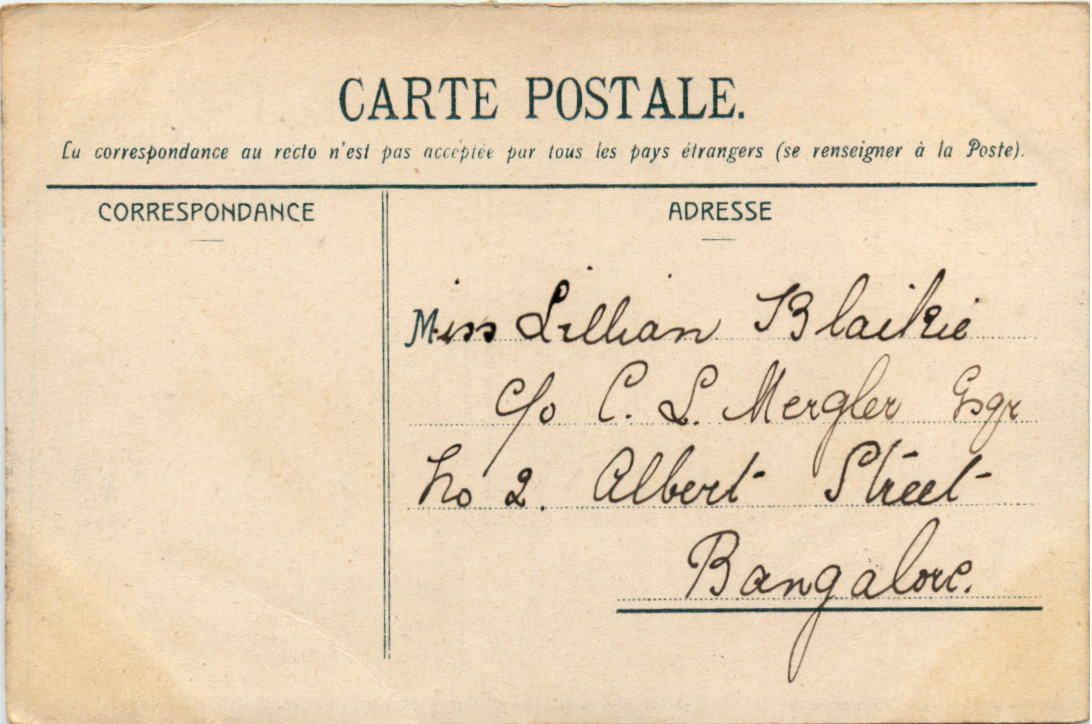 CARTE POSTALE.
La correspondance au recto n'est pas acceptée par tous les pays étrangers (se renseigner à la Poste).
CORRESPONDANCE
ADRESSE
Miss Lillian Blaikie
c/o C. L. Mergler Esqr
No 2. Albert Street
Bangalore.